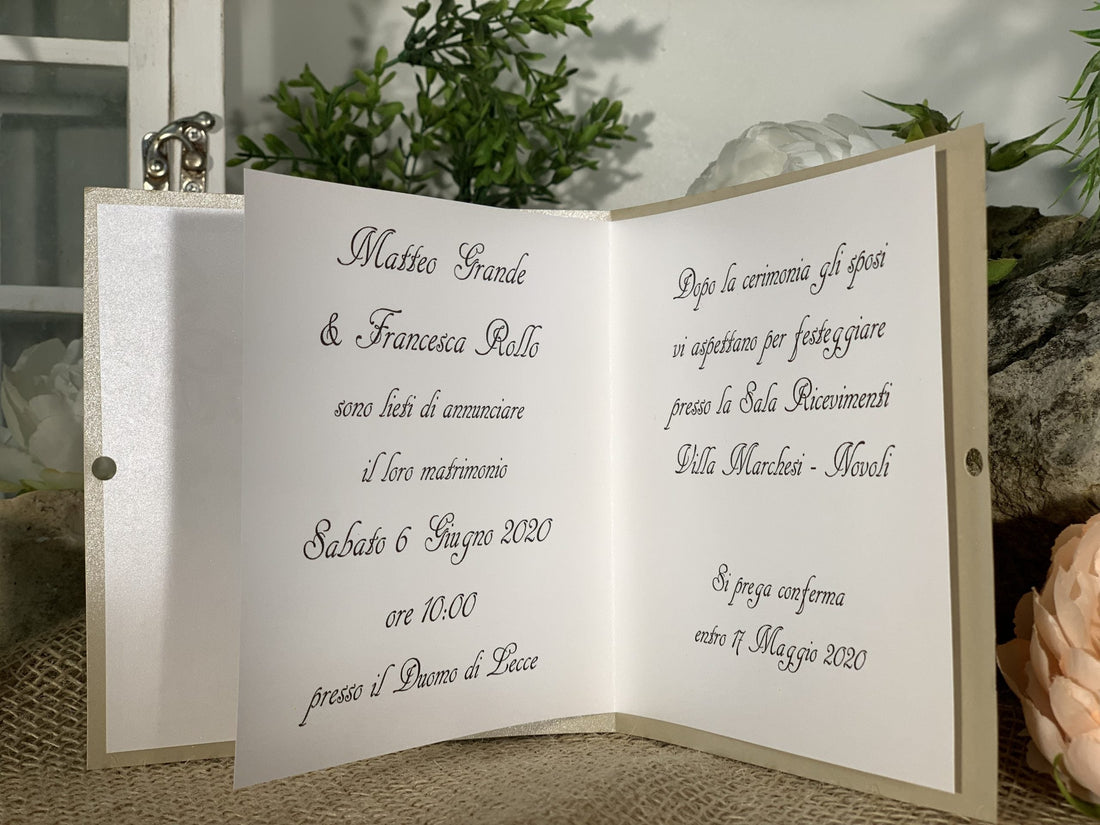 Matteo Grande
& Francesca Rollo
sono lieti di annunciare
il loro matrimonio
Sabato 6 Giugno 2020
ore 10:00
presso il Duomo di Lecce
Dopo la cerimonia gli sposi
vi aspettano per festeggiare
presso la Sala Ricevimenti
Villa Marchesi - Novoli
Si prega conferma
entro 17 Maggio 2020